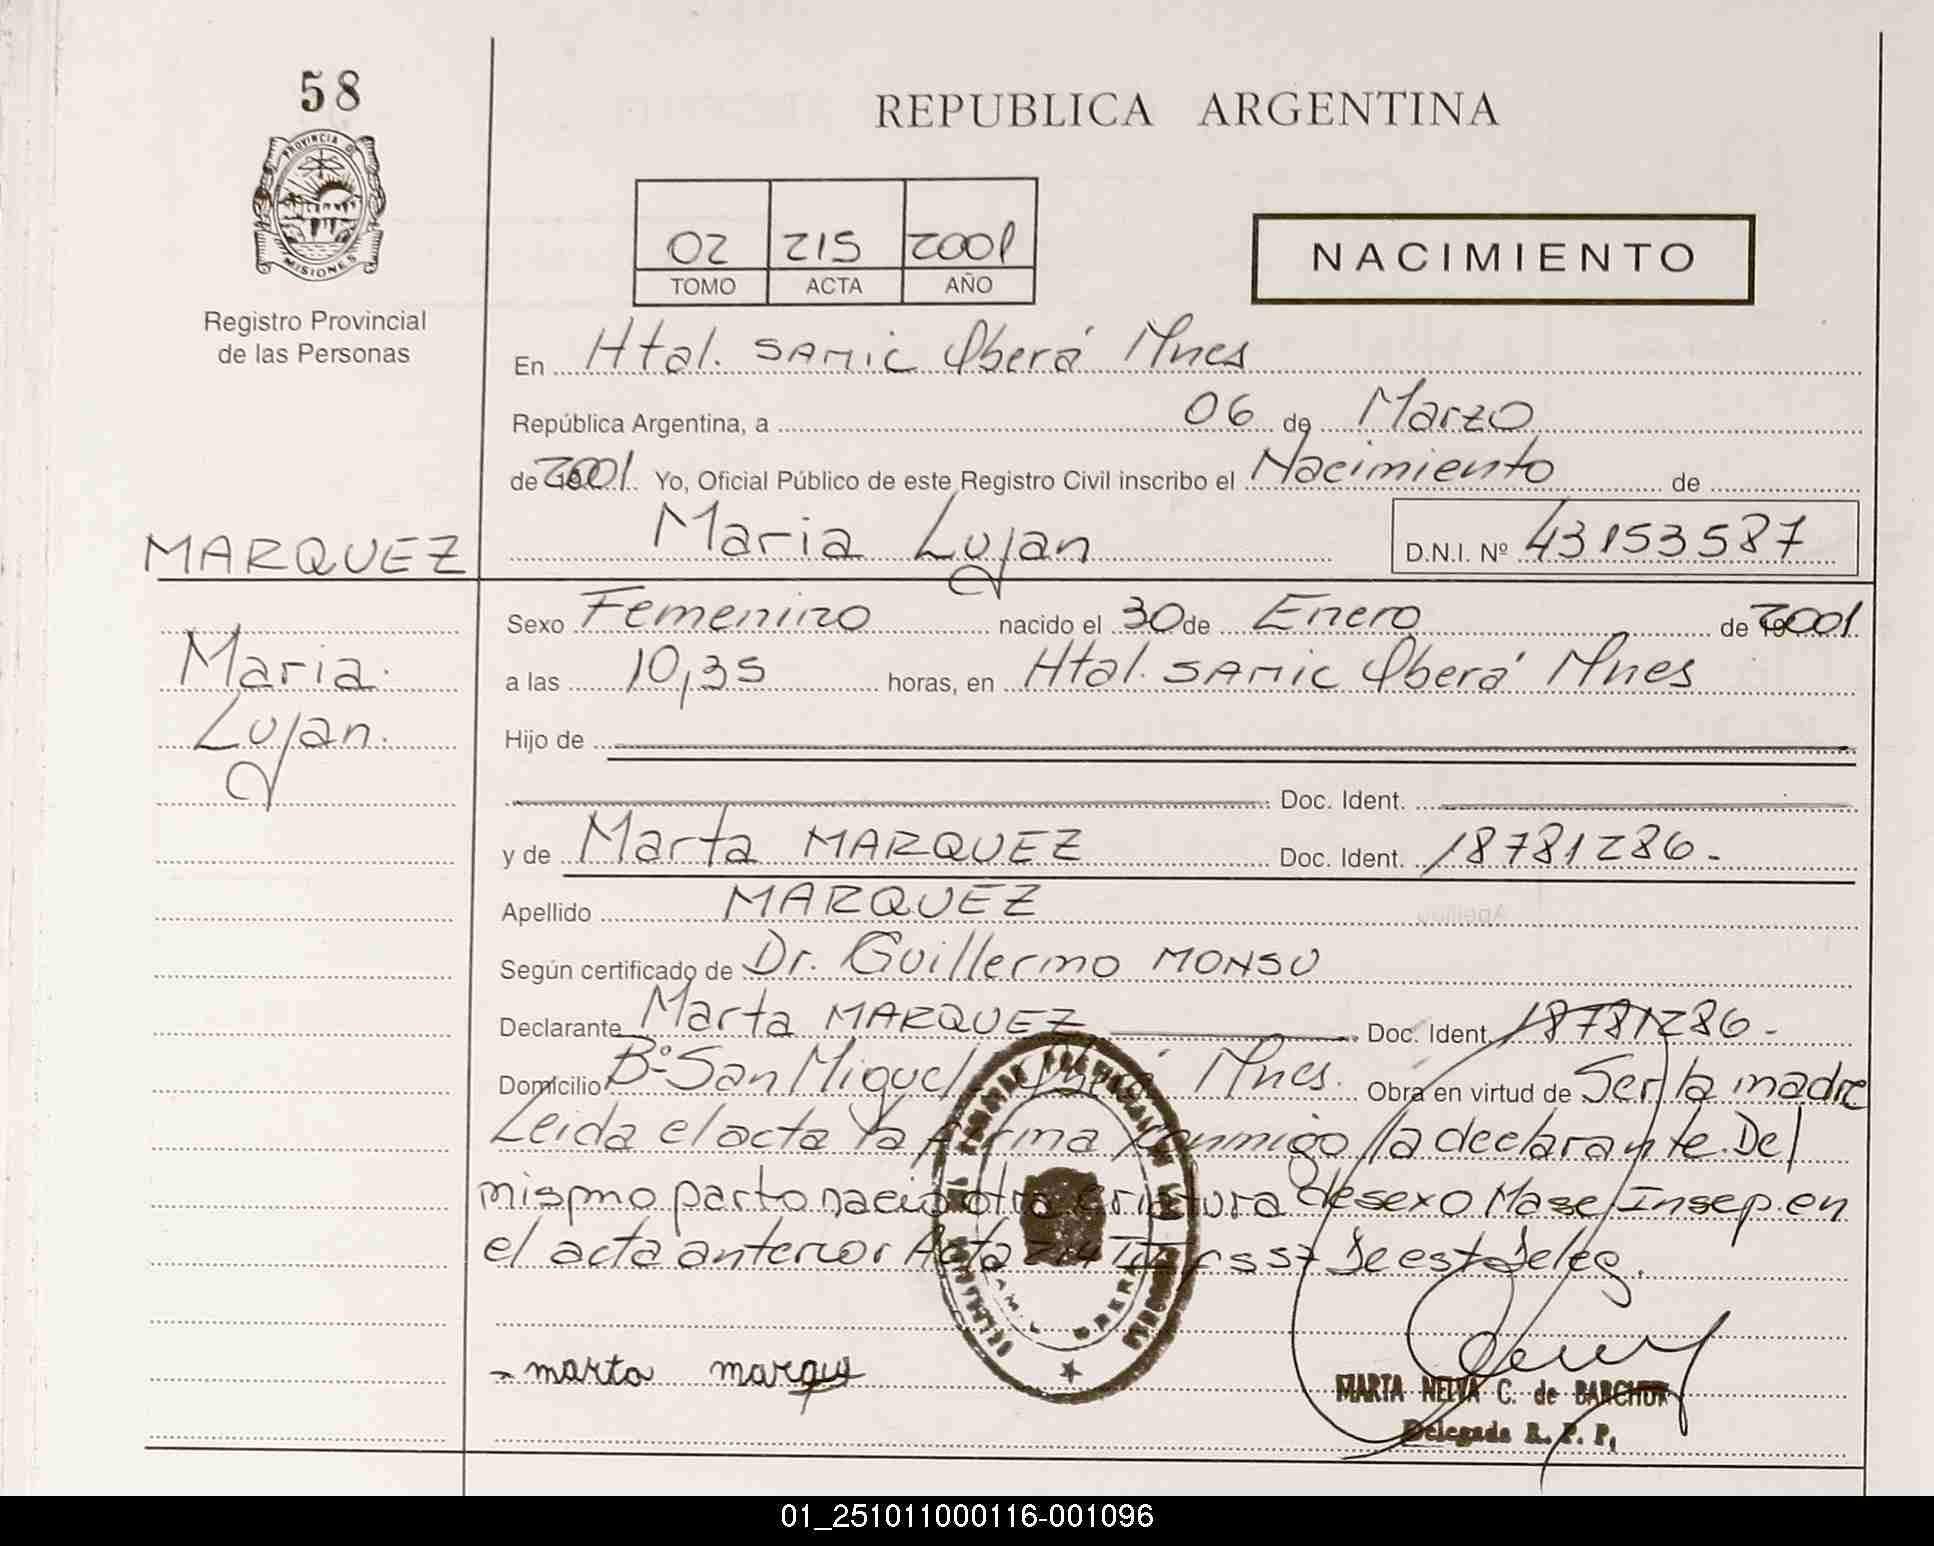 58
PROVINCIA DE
MISIONES
Registro Provincial
de las Personas
MARQUEZ
Maria
Lujan.
REPUBLICA ARGENTINA
02 215 2001
TOMO ACTA AÑO
NACIMIENTO
En Htal. SAMIC Oberá Mnes
República Argentina, a 06 de Marzo
de 2001. Yo, Oficial Público de este Registro Civil inscribo el Nacimiento de
Maria Lujan D.N.I. Nº 43153587
Sexo Femenino nacido el 30 de Enero de 2001
a las 10,35 horas, en Htal. SAMIC Oberá Mnes
Hijo de
Doc. Ident.
y de Marta MARQUEZ Doc. Ident. 18781286.-
Apellido MARQUEZ
Según certificado de Dr. Guillermo MONSU
Declarante Marta MARQUEZ Doc. Ident. 18781286.-
Domicilio Bº San Miguel Oberá Mnes. Obra en virtud de Ser la madre
Leida el acta la firma conmigo la declarante. Del
mismo parto nacio otra criatura de sexo Masc Inscp. en
el acta anterior Acta 214 TII Fs 57 De esta Deleg.
- marta marque
MARTA NELVA C. de BARCHUK
Delegada R. P. P.
01_251011000116-001096